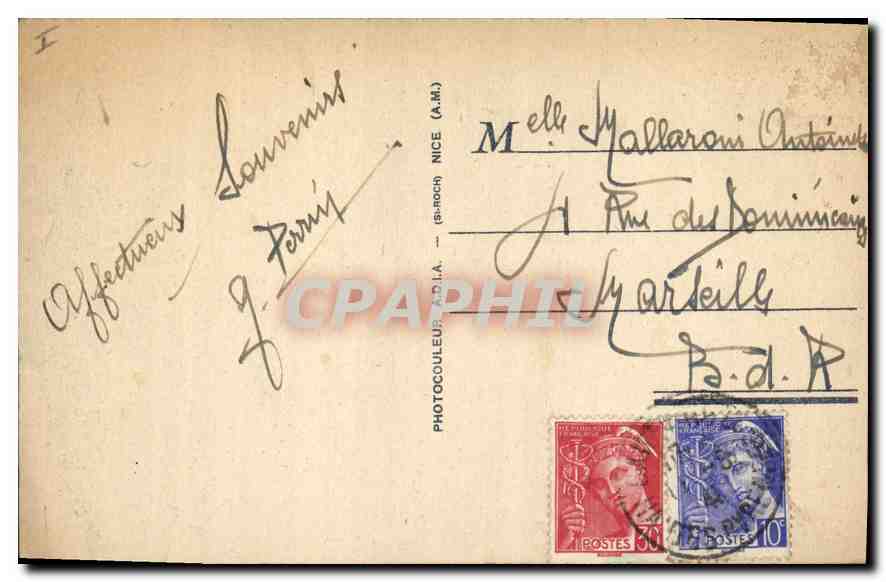 I
Affectueux Souvenirs
PHOTOCOULEUR A.D.I.A. — (St-ROCH) NICE (A.M.)
Melle Mallaroni
Rue des Dominicaines
Marseille
B.d.R
CPAPHIL
REPUBLIQUE FRANÇAISE
POSTES 30c
REPUBLIQUE FRANÇAISE
POSTES 10c